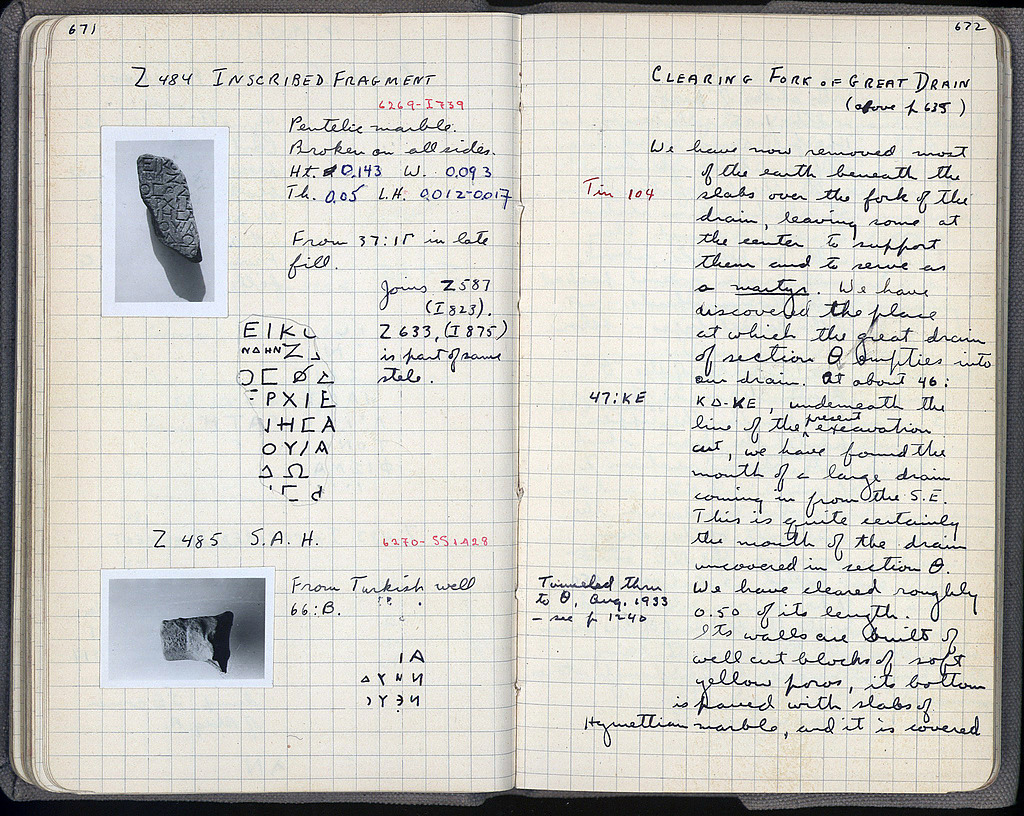 671
Z 484 INSCRIBED FRAGMENT
6269-I739
Pentelic marble.
Broken on all sides.
Ht. 0.143 W. 0.093
Th. 0.05 L.H. 0.012-0.017
From 37:ΙΓ in late
fill.
Joins Z 587
(I 823).
Z 633, (I 875)
is part of same
stele.
ΕΙΚ
ΝΔΗΝΖ
ΡΧΙΕ
ΟΥΙΑ
ΔΩ
Z 485 S.A.H.
6270-SS1428
From Turkish well
66:B.
ΙΑ
672
CLEARING FORK OF GREAT DRAIN
(above p 635)
We have now removed most
of the earth beneath the
Tin 104
slabs over the fork of the
drain, leaving some at
the center to support
them and to serve as
a martyr. We have
discovered the place
at which the great drain
of section Θ empties into
our drain. At about 46:
47:ΚΕ
ΚΔ-ΚΕ, underneath the
line of the present excavation
cut, we have found the
mouth of a large drain
coming in from the S.E.
This is quite certainly
the mouth of the drain
uncovered in section Θ.
Tunneled thru
to Θ, Aug. 1933
- see p 1240
We have cleared roughly
0.50 of its length.
Its walls are built of
well cut blocks of soft
yellow poros, its bottom
is paved with slabs of
Hymettian marble, and it is covered